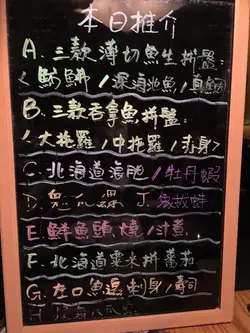 本日推介
A. 三款薄切魚生拼盤
/深海池魚/
B. 三款吞拿魚拼盤
〈大拖羅/中拖羅/赤身〉
C. 北海道海膽/牡丹蝦
D. J.
E. 鮮魚頭燒/汁煮
F. 北海道粟米拼蕃茄
G. 左口魚邊刺身/壽司
H.